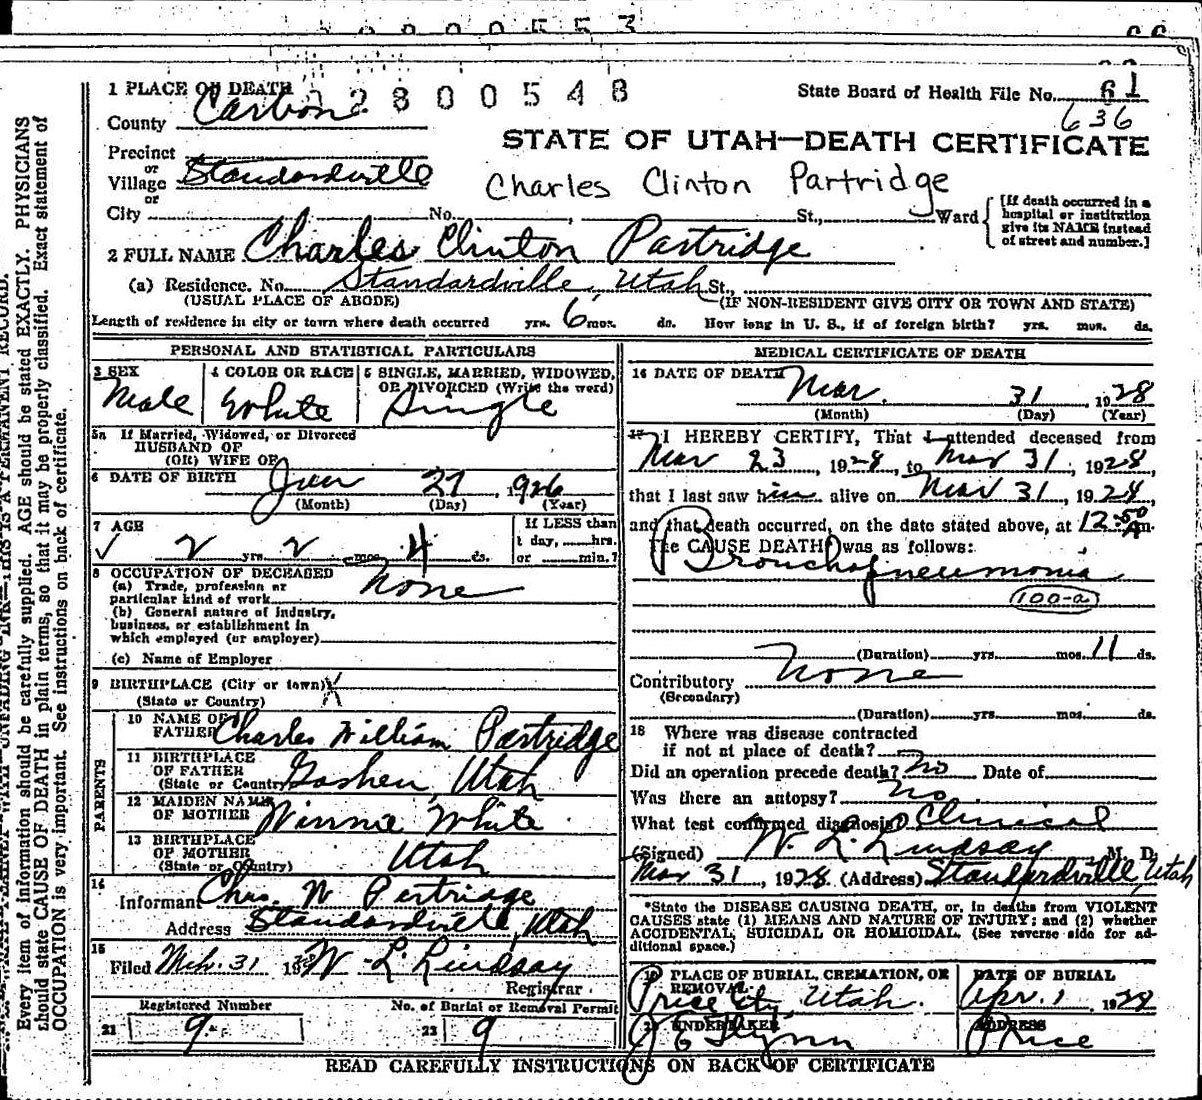 2800548
1 PLACE OF DEATH
State Board of Health File No. 61
636
County Carbon
STATE OF UTAH—DEATH CERTIFICATE
Precinct
or
Village Standardville
or
Charles Clinton Partridge
City No. St., Ward
[If death occurred in a hospital or institution give its NAME instead of street and number.]
2 FULL NAME Charles Clinton Partridge
(a) Residence. No. Standardville, Utah St.,
(USUAL PLACE OF ABODE) (IF NON-RESIDENT GIVE CITY OR TOWN AND STATE)
Length of residence in city or town where death occurred yrs. 6 mos. ds. How long in U. S., if of foreign birth? yrs. mos. ds.
PERSONAL AND STATISTICAL PARTICULARS
3 SEX
Male
4 COLOR OR RACE
White
5 SINGLE, MARRIED, WIDOWED,
OR DIVORCED (Write the word)
Single
5a If Married, Widowed, or Divorced
HUSBAND OF
(OR) WIFE OF
6 DATE OF BIRTH Jan 27, 1926
(Month) (Day) (Year)
7 AGE
2 yrs. 2 mos. 4 ds.
If LESS than
1 day, hrs.
or min.?
8 OCCUPATION OF DECEASED
(a) Trade, profession or
particular kind of work None
(b) General nature of industry,
business, or establishment in
which employed (or employer)
(c) Name of Employer
9 BIRTHPLACE (City or town)
(State or Country)
PARENTS
10 NAME OF
FATHER Charles William Partridge
11 BIRTHPLACE
OF FATHER
(State or Country) Goshen, Utah
12 MAIDEN NAME
OF MOTHER Winnie White
13 BIRTHPLACE
OF MOTHER
(State or Country) Utah
14
Informant Chas. W Partridge
Address Standardville, Utah
15
Filed Mch. 31 1928 W L Lindsay
Registrar
Registered Number
21 9
No. of Burial or Removal Permit
22 9
MEDICAL CERTIFICATE OF DEATH
16 DATE OF DEATH Mar. 31 1928
(Month) (Day) (Year)
17 I HEREBY CERTIFY, That I attended deceased from
Mar 23, 1928, to Mar 31, 1928
that I last saw him alive on Mar 31, 1928,
and that death occurred, on the date stated above, at 12:50 A m.
The CAUSE DEATH was as follows:
Bronchopneumonia
100-a
(Duration) yrs. mos. 11 ds.
Contributory None
(Secondary)
(Duration) yrs. mos. ds.
18 Where was disease contracted
if not at place of death?
Did an operation precede death? No Date of
Was there an autopsy? No
What test confirmed diagnosis? Clinical
(Signed) W. L. Lindsay M. D.
Mar 31, 1928 (Address) Standardville, Utah
*State the DISEASE CAUSING DEATH, or, in deaths from VIOLENT
CAUSES state (1) MEANS AND NATURE OF INJURY; and (2) whether
ACCIDENTAL, SUICIDAL OR HOMICIDAL. (See reverse side for ad-
ditional space.)
19 PLACE OF BURIAL, CREMATION, OR
REMOVAL
Price City, Utah.
DATE OF BURIAL
Apr. 1 1928
20 UNDERTAKER
J E Flynn
ADDRESS
Price
READ CAREFULLY INSTRUCTIONS ON BACK OF CERTIFICATE
Every item of information should be carefully supplied. AGE should be stated EXACTLY. PHYSICIANS
should state CAUSE OF DEATH in plain terms, so that it may be properly classified. Exact statement of
OCCUPATION is very important. See instructions on back of certificate.